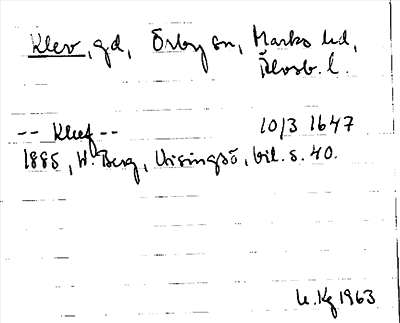 Klev, gd, Örby sn, Marks hd,
Älvsb. l.
-- Kleef -- 10/3 1647
1885, W. Berg, Visingsö, bil. s. 40.
U. Kg 1963